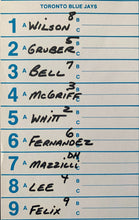 TORONTO BLUE JAYS
1 A WILSON 8 B C
2 A GRUBER 5 B C
3 A BELL 7 B C
4 A McGRIFF 3 B C
5 A WHITT 2 B C
6 A FERNANDEZ 6 B C
7 A MAZZILLI DH B C
8 A LEE 4 B C
9 A FELIX 9 B C